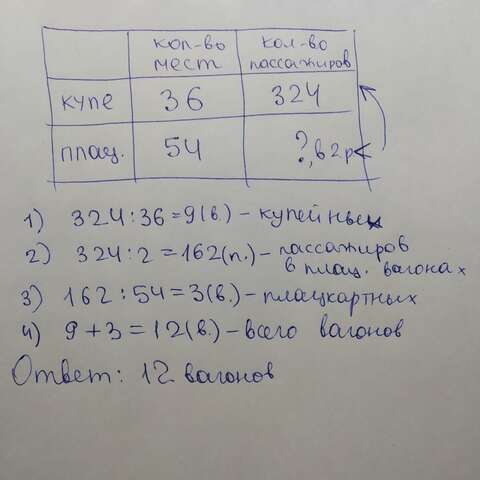 кол-во мест
кол-во пассажиров
купе 36 324
плац. 54 ?, в 2 р <
1) 324 : 36 = 9 (в.) – купейных
2) 324 : 2 = 162 (п.) – пассажиров
в плац. вагонах
3) 162 : 54 = 3 (в.) – плацкартных
4) 9 + 3 = 12 (в.) – всего вагонов
Ответ: 12 вагонов